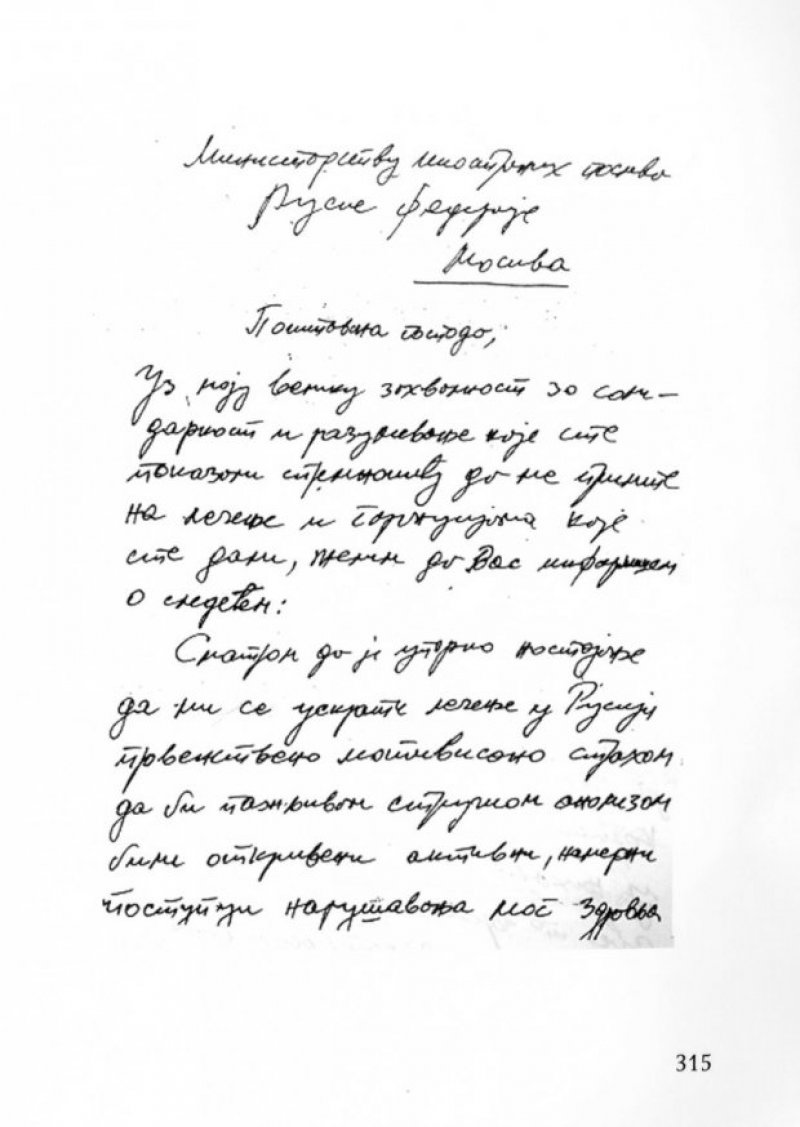 Министарству иностраних послова
Русије Федерације
Москва
Поштована господо,
Уз моју велику захвалност за соли-
дарност и разумевање које сте
показали спремношћу да ме примите
на лечење и гаранцијама које
сте дали, желим да Вас информишем
о следећем:
Сматрам да је упорно настојање
да ми се ускрати лечење у Русији
првенствено мотивисано страхом
да би пажљивом стручном анализом
били откривени активни, намерни
поступци нарушавања мог здравља
315